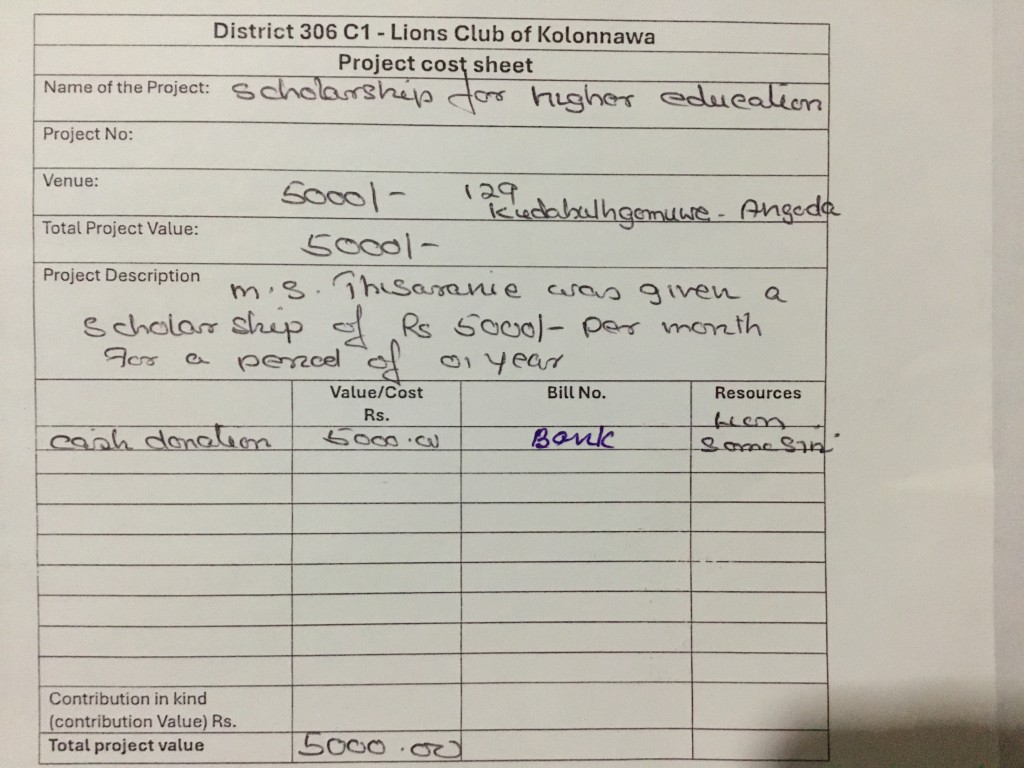 District 306 C1 - Lions Club of Kolonnawa
Project cost sheet
Name of the Project: Scholarship for higher education
Project No:
Venue: 5000/- 129
Kudabuthgomuwe - Angoda
Total Project Value: 5000/-
Project Description M.S. Thisaranie was given a
Scholarship of Rs 5000/- per month
For a period of 01 year
Value/Cost Rs. Bill No. Resources
cash donation 5000.00 Bank Lion Somasiri
Contribution in kind
(contribution Value) Rs.
Total project value 5000.00